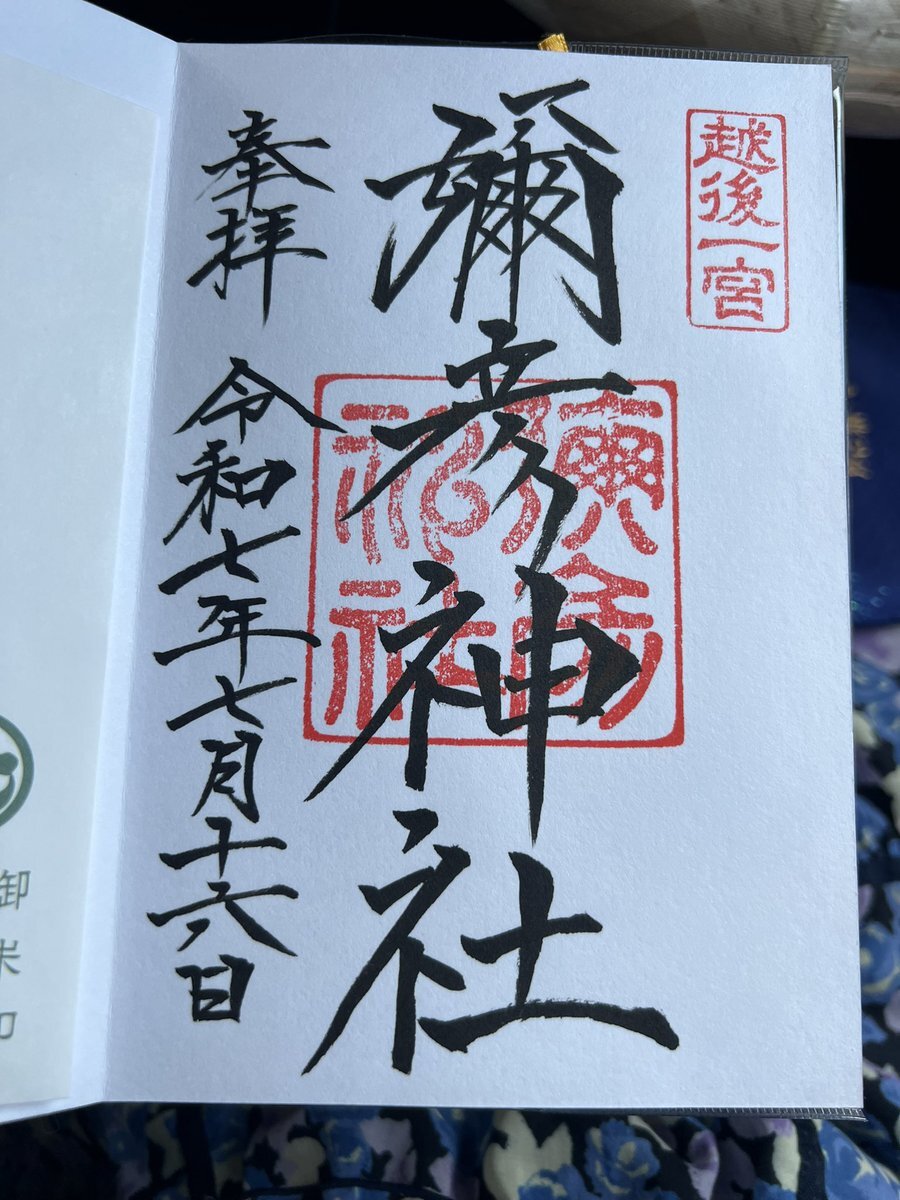 越後一宮
彌彦神社
奉拝
令和七年七月十六日
御朱印